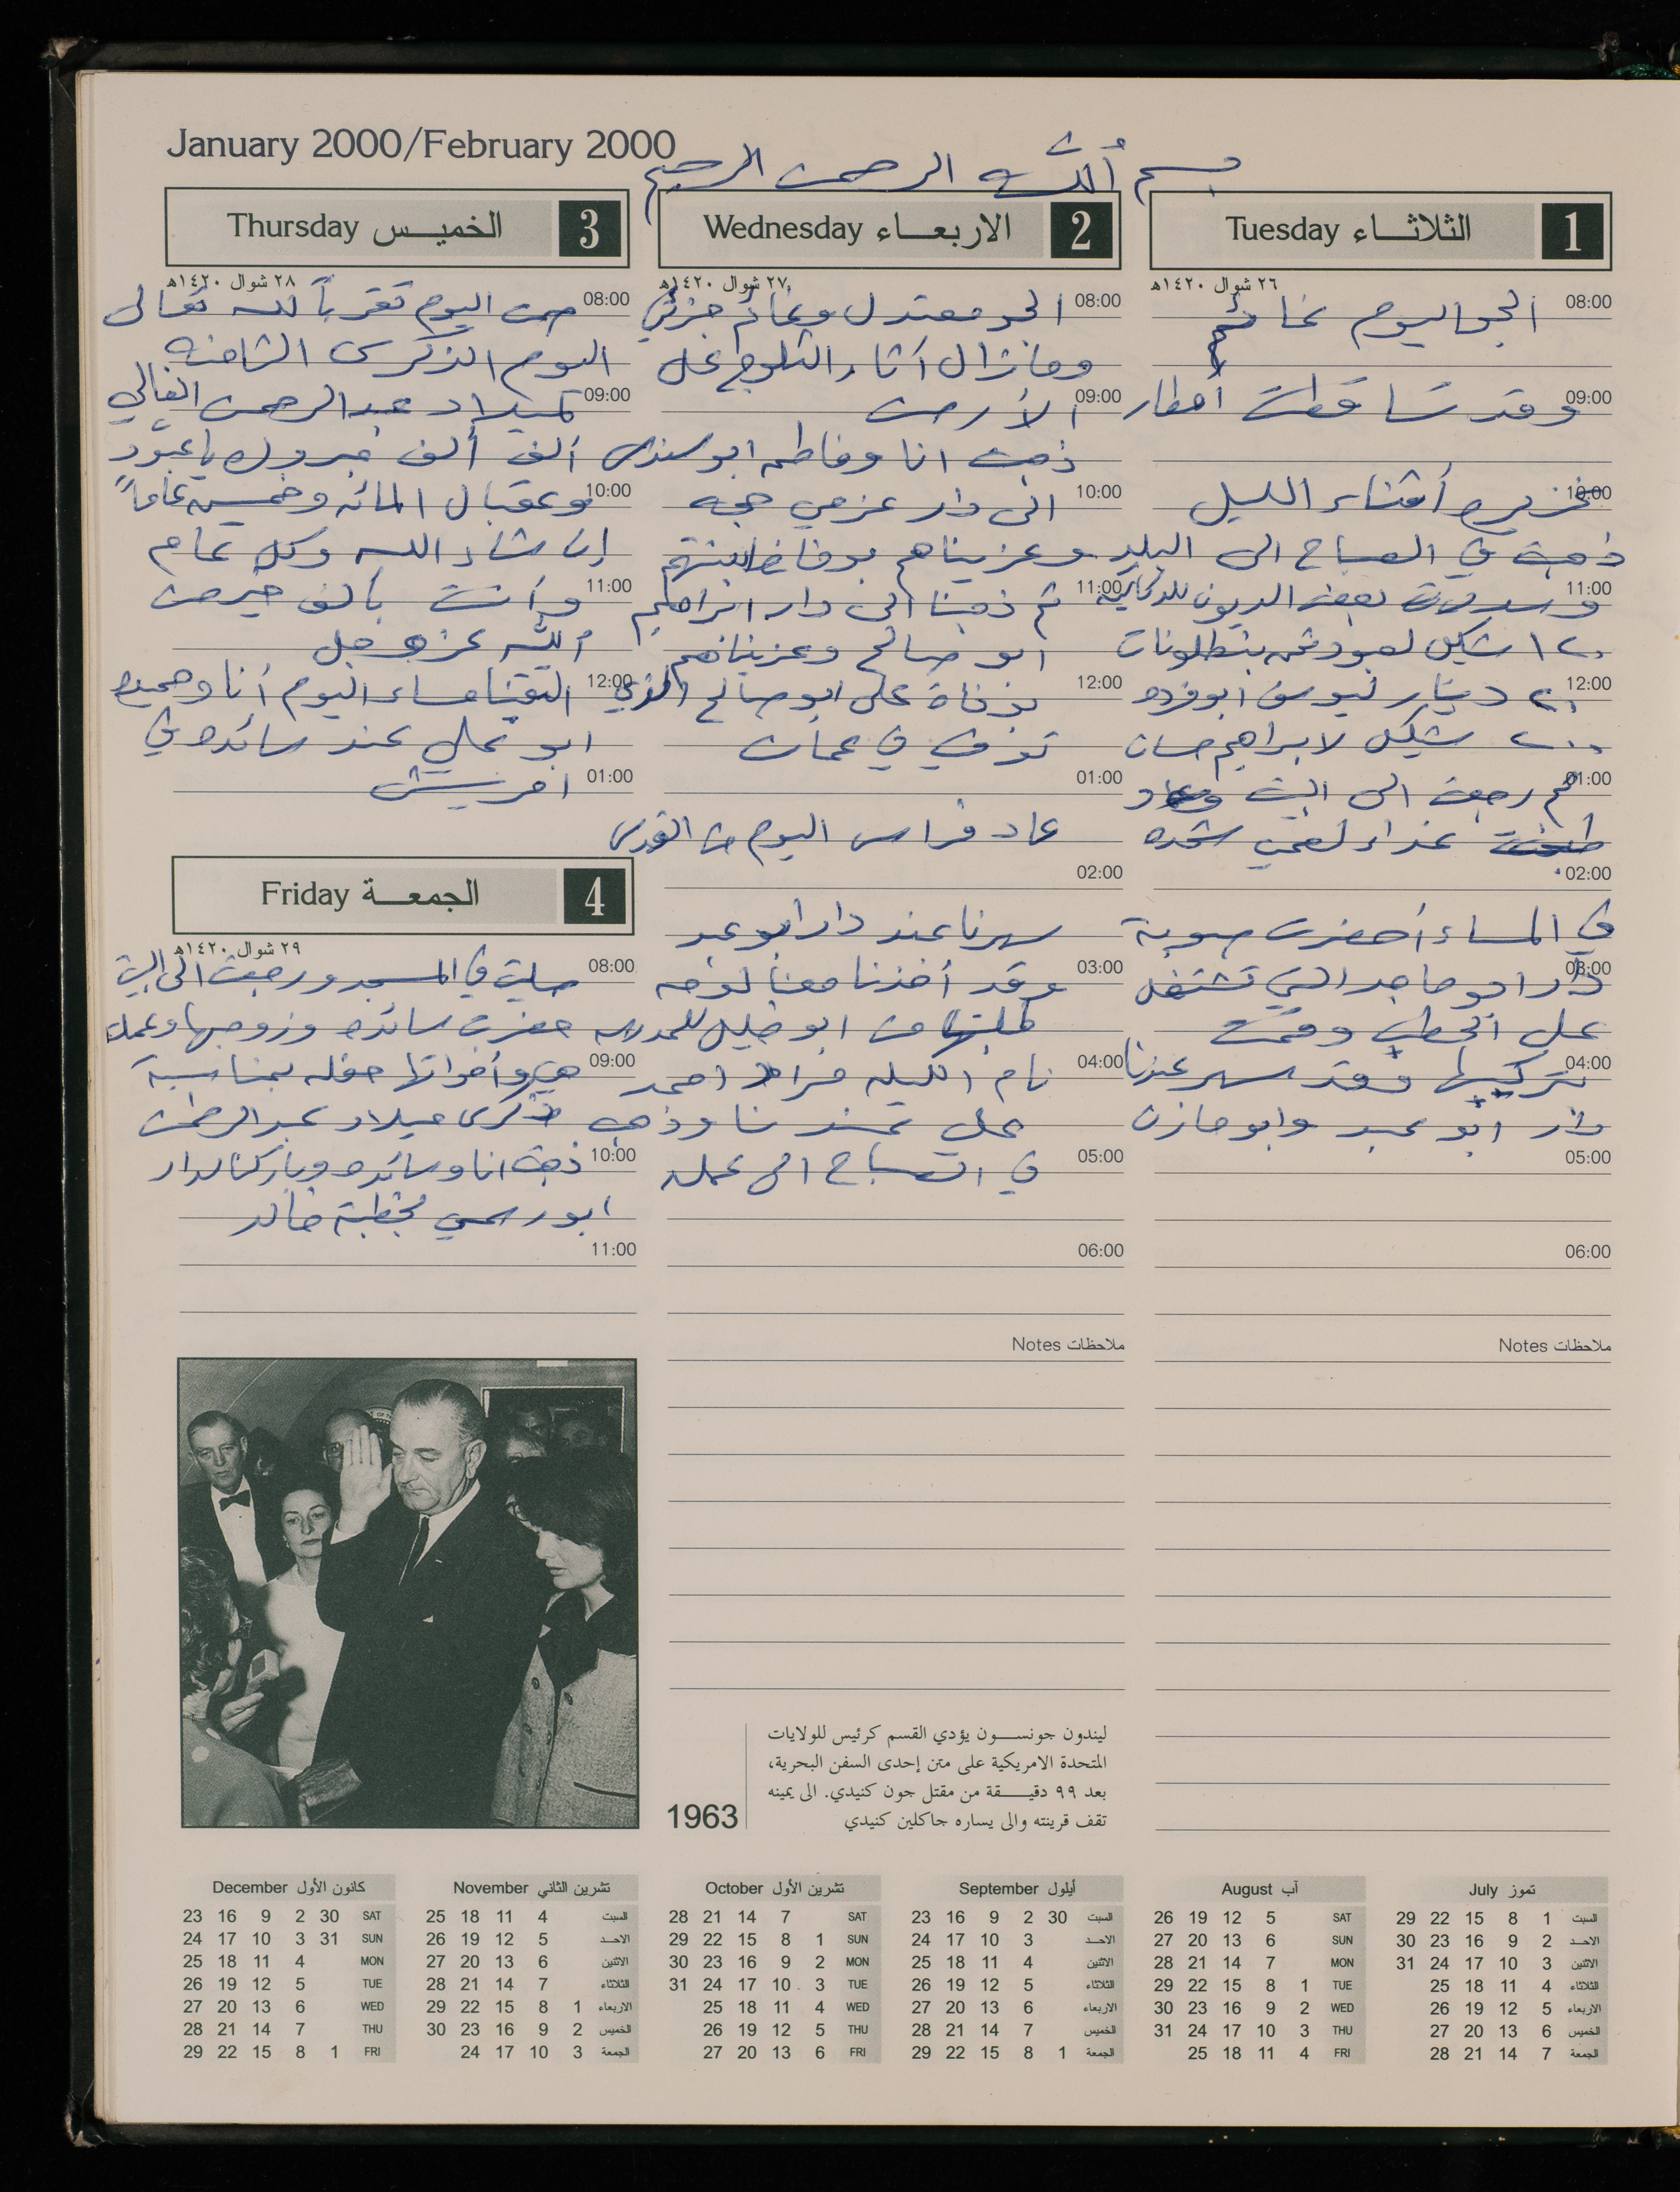 January 2000/February 2000
بسم الله الرحمن الرحيم
الثلاثاء Tuesday 1
٢٦ شوال ١٤٢٠هـ
08:00 الجو اليوم غائم
09:00 وقد تساقطت أمطار
10:00 غزيره أثناء الليل
ذهبت في الصباح الى البلد
11:00 وسددت بعض الديون للدكاكين
١٢٠ شيكل لعبود ثمن بنطلونات
12:00 ٢٠ دينار ليوسف ابوفرده
٢٠٠ شيكل لابراهيم حسان
01:00 ثم رجعت الى البيت
طبخت غداء لفحي شحده
02:00
في المساء أحضرت صوبة
03:00 دار ابو ماجد التي تشتغل
على الحطب وقمت
04:00 بتركيبها وقد سهر عندنا
دار ابو عبد وابو مازن
05:00
06:00
ملاحظات Notes
الاربعاء Wednesday 2
٢٧ شوال ١٤٢٠هـ
08:00 الجو معتدل وغائم جزئي
وما تزال آثار الثلوج على
09:00 الأرض
ذهبت انا وفاطمه ابو سندس
10:00 الى دار عزمي حجه
وعزيناهم بوفاة ابنتهم
11:00 ثم ذهبنا الى دار ابراهيم
ابو صالح وعزيناهم
12:00 بوفاة علي ابو صالح الذي
توفي في عمان
01:00
عاد فراس اليوم من القدس
02:00
سهرنا عند دار ابو عبد
03:00 وقد أخذنا معنا لوحه
طلبتها من ابو خليل للمدرسه
04:00 نام الليله مراد احمد
علي عندنا وذهب
05:00 في الصباح الى عمله
06:00
ملاحظات Notes
الخميس Thursday 3
٢٨ شوال ١٤٢٠هـ
08:00 صمت اليوم تقرباً لله تعالى
اليوم الذكرى الثامنه
09:00 لميلاد عبدالرحمن الغالي
ألف ألف مبروك يا عبّود
10:00 وعقبال المائه وخمسين عاماً
إن شاء الله وكل عام
11:00 وأنت بألف خير من
الله عز وجل
12:00 التقينا مساء اليوم أنا وحميده
ابو علي عند سائده في
01:00 افرييش
الجمعة Friday 4
٢٩ شوال ١٤٢٠هـ
08:00 صليت في المسجد ورجعت الى البيت
حضرت سائده وزوجها وعملت
09:00 هي وأخواتها حفله بمناسبة
ذكرى ميلاد عبدالرحمن
10:00 ذهبت انا وسائده وباركنا لدار
ابو رسمي بخطبة خالد
11:00
1963
ليندون جونسون يؤدي القسم كرئيس للولايات
المتحدة الامريكية على متن إحدى السفن البحرية،
بعد ٩٩ دقيقة من مقتل جون كنيدي. الى يمينه
تقف قرينته والى يساره جاكلين كنيدي
تموز July
29 22 15 8 1 السبت
30 23 16 9 2 الاحد
31 24 17 10 3 الاثنين
25 18 11 4 الثلاثاء
26 19 12 5 الاربعاء
27 20 13 6 الخميس
28 21 14 7 الجمعة
آب August
26 19 12 5 SAT
27 20 13 6 SUN
28 21 14 7 MON
29 22 15 8 1 TUE
30 23 16 9 2 WED
31 24 17 10 3 THU
25 18 11 4 FRI
أيلول September
23 16 9 2 30 السبت
24 17 10 3 الاحد
25 18 11 4 الاثنين
26 19 12 5 الثلاثاء
27 20 13 6 الاربعاء
28 21 14 7 الخميس
29 22 15 8 1 الجمعة
تشرين الأول October
28 21 14 7 SAT
29 22 15 8 1 SUN
30 23 16 9 2 MON
31 24 17 10 3 TUE
25 18 11 4 WED
26 19 12 5 THU
27 20 13 6 FRI
تشرين الثاني November
25 18 11 4 السبت
26 19 12 5 الاحد
27 20 13 6 الاثنين
28 21 14 7 الثلاثاء
29 22 15 8 1 الاربعاء
30 23 16 9 2 الخميس
24 17 10 3 الجمعة
كانون الأول December
23 16 9 2 30 SAT
24 17 10 3 31 SUN
25 18 11 4 MON
26 19 12 5 TUE
27 20 13 6 WED
28 21 14 7 THU
29 22 15 8 1 FRI